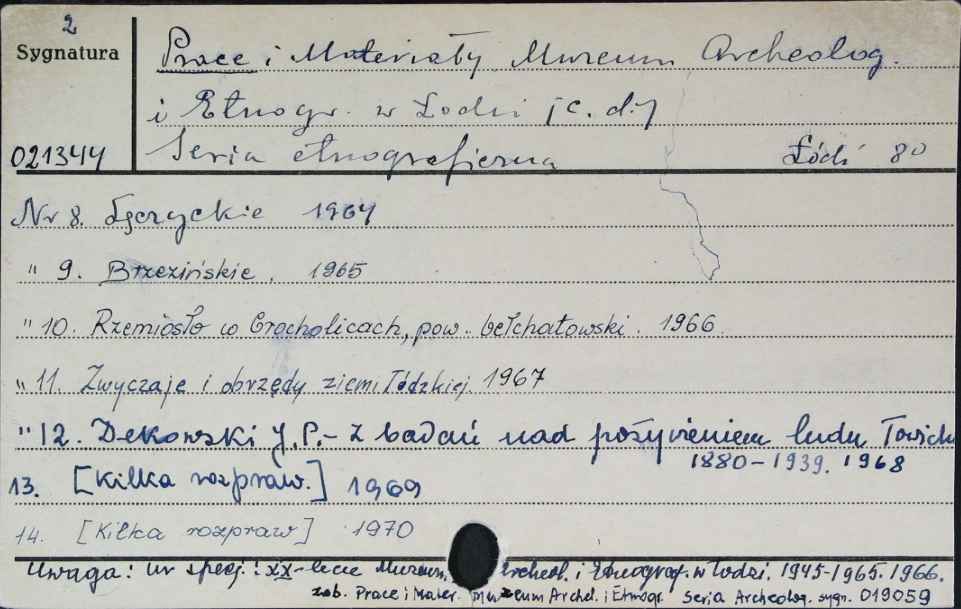 2
Sygnatura
Prace i Materiały Muzeum Archeolog.
i Etnogr. w Łodzi (c. d.)
021344
Seria etnograficzna Łódź 80
Nr 8. Łęczyckie 1964
" 9. Brzezińskie. 1965
" 10. Rzemiosło w Grocholicach, pow. bełchatowski. 1966
" 11. Zwyczaje i obrzędy ziemi łódzkiej. 1967
" 12. Dekowski J. P. - Z badań nad pożywieniem ludu Łowick
1880-1939. 1968
13. [Kilka rozpraw.] 1969
14. [Kilka rozpraw] 1970
Uwaga: nr specj.: XX-lecie Muzeum Archeol. i Etnograf. w Łodzi. 1945-1965. 1966.
zob. Prace i Mater. Muzeum Archel. i Etnogr. Seria Archeolog. sygn. 019059